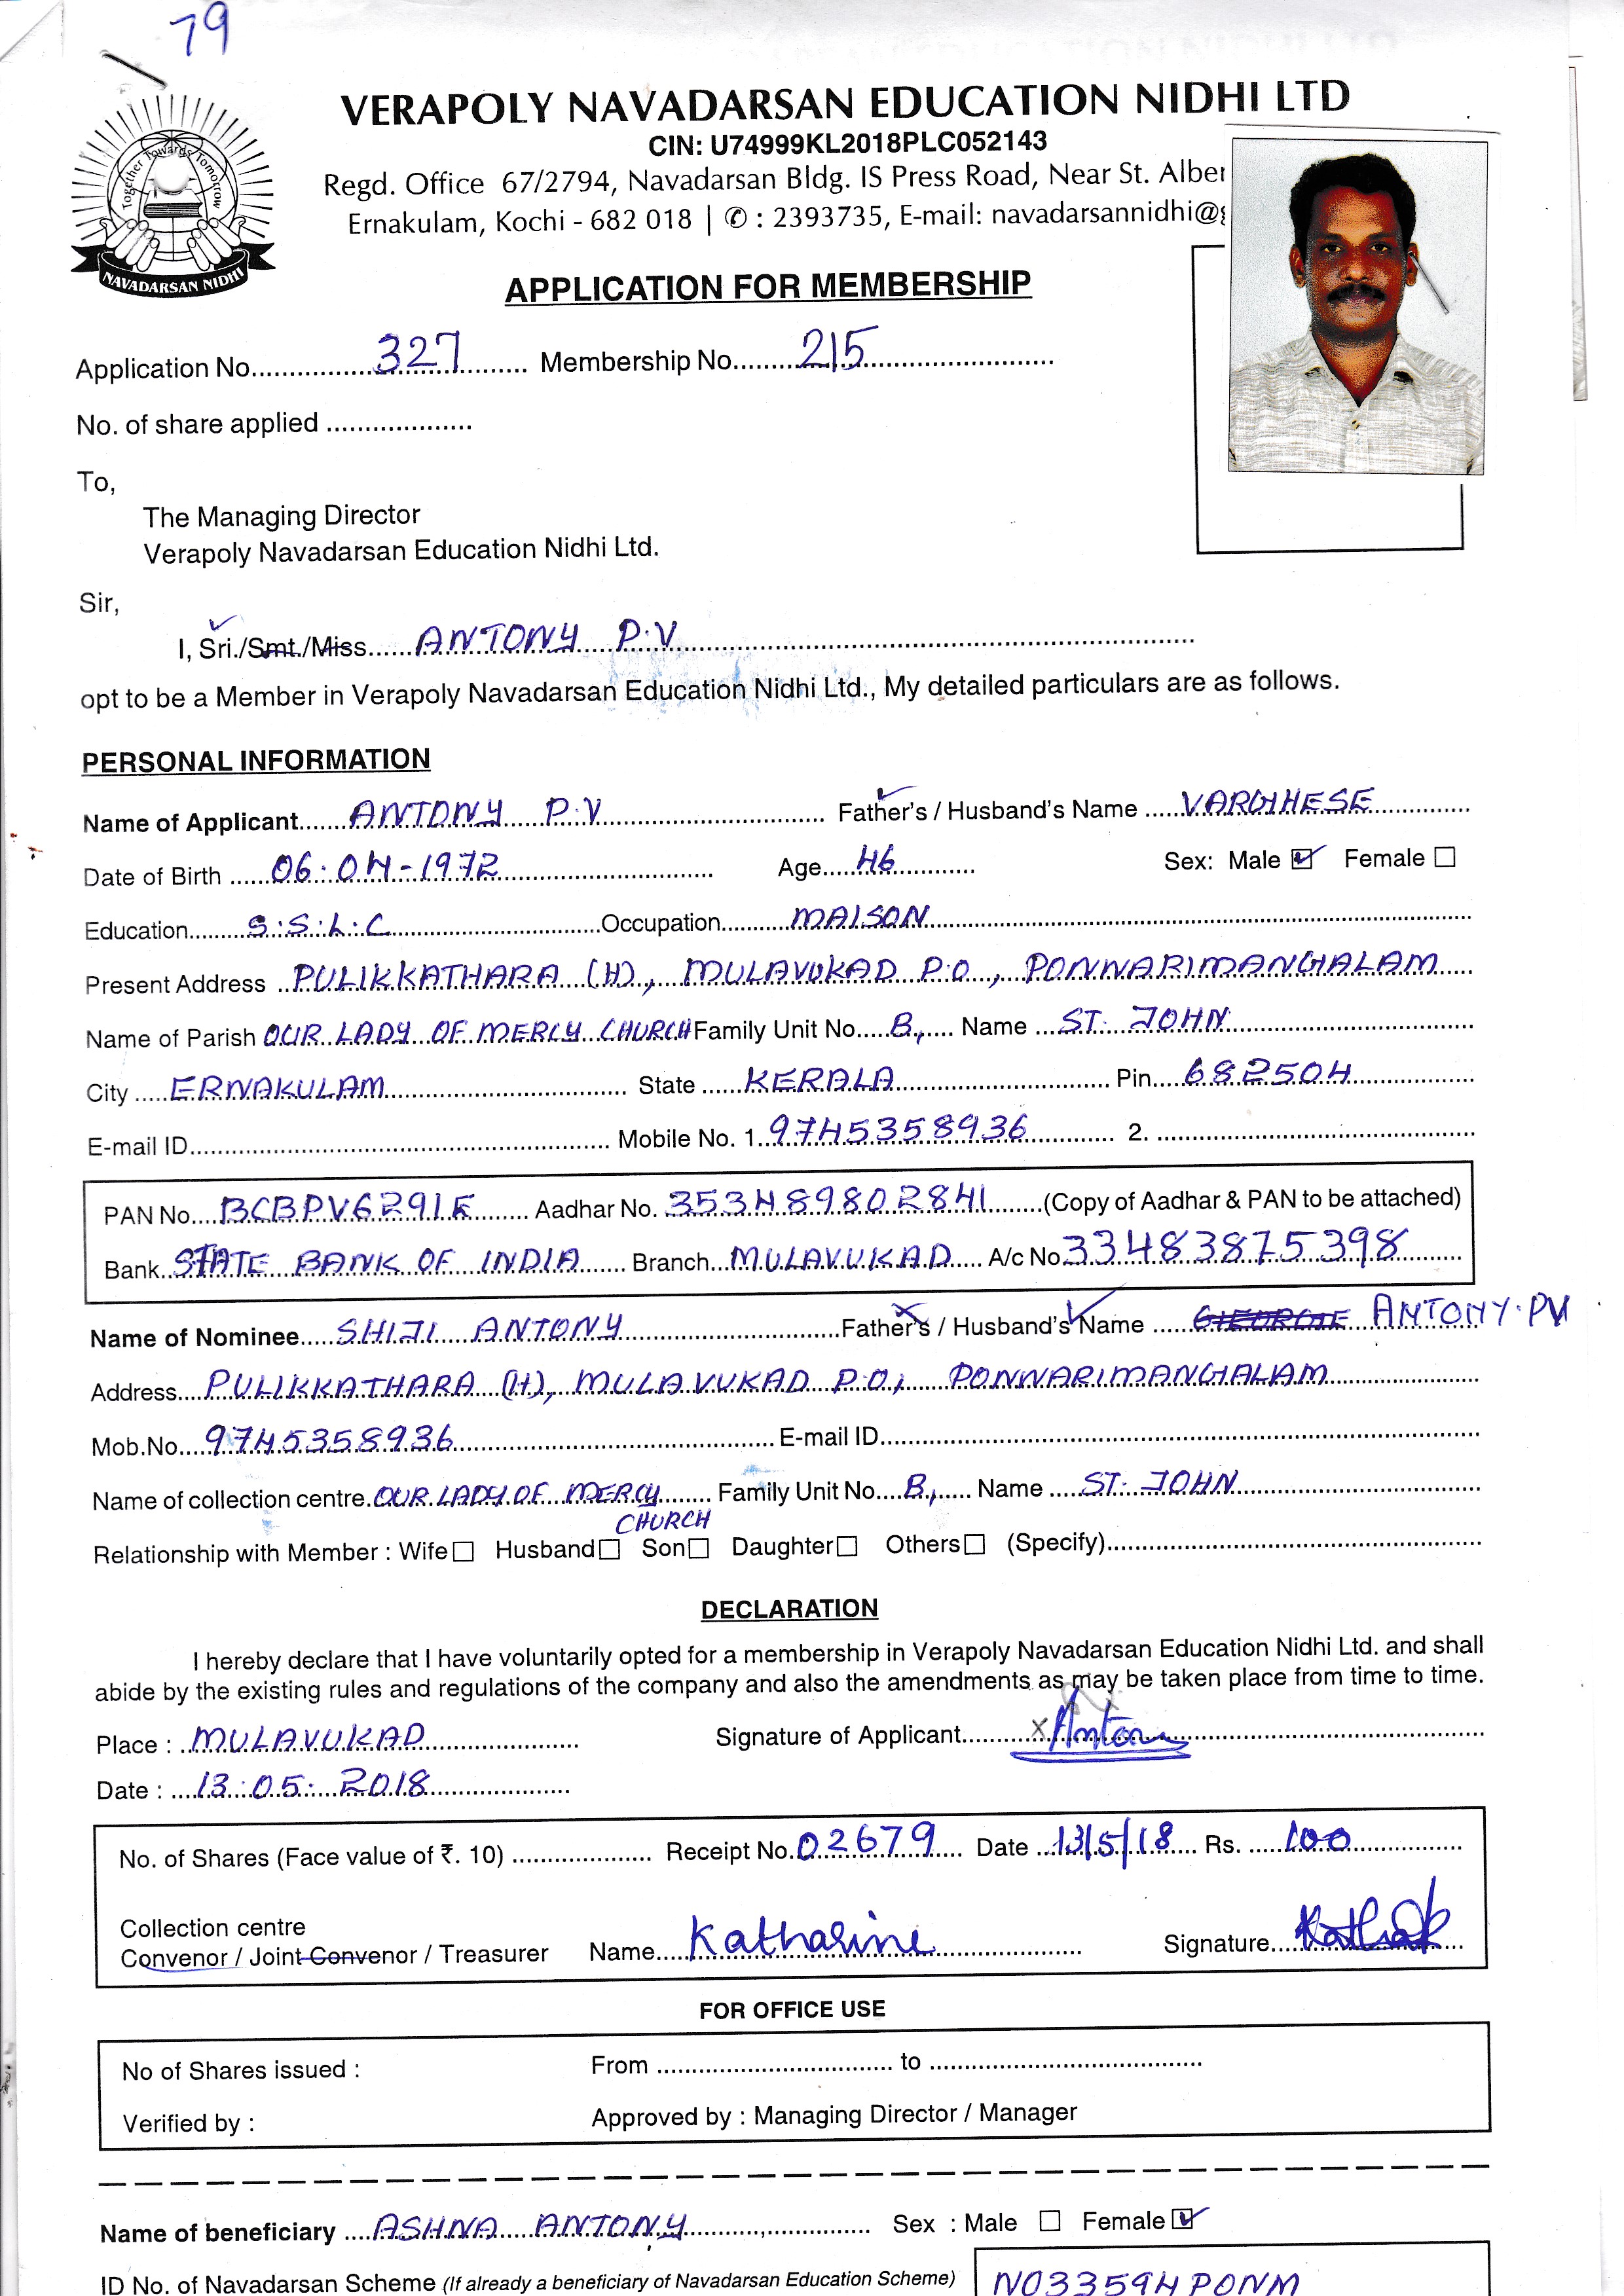 79
VERAPOLY NAVADARSAN EDUCATION NIDHI LTD
CIN: U74999KL2018PLC052143
Regd. Office 67/2794, Navadarsan Bldg. IS Press Road, Near St. Alber
Ernakulam, Kochi - 682 018 | ✆ : 2393735, E-mail: navadarsannidhi@g
Together Towards Tomorrow
NAVADARSAN NIDHI
APPLICATION FOR MEMBERSHIP
Application No. 327 Membership No. 215
No. of share applied
To,
The Managing Director
Verapoly Navadarsan Education Nidhi Ltd.
Sir,
I, Sri./Smt./Miss ANTONY P.V
opt to be a Member in Verapoly Navadarsan Education Nidhi Ltd., My detailed particulars are as follows.
PERSONAL INFORMATION
Name of Applicant ANTONY P.V Father's / Husband's Name VARGHESE
Date of Birth 06.04-1972 Age 46 Sex: Male ☑ Female ☐
Education S.S.L.C Occupation MAISON
Present Address PULIKKATHARA (H), MULAVUKAD P.O, PONNARIMANGALAM
Name of Parish OUR LADY OF MERCY CHURCH Family Unit No. B, Name ST. JOHN
City ERNAKULAM State KERALA Pin 682504
E-mail ID Mobile No. 1. 9745358936 2.
PAN No. BCBPV6291E Aadhar No. 353489802841 (Copy of Aadhar & PAN to be attached)
Bank STATE BANK OF INDIA Branch MULAVUKAD A/c No 33483875398
Name of Nominee SHIJI ANTONY Father's / Husband's Name GEORGE ANTONY.PV
Address PULIKKATHARA (H), MULAVUKAD P.O, PONNARIMANGALAM
Mob.No. 9745358936 E-mail ID
Name of collection centre OUR LADY OF MERCY CHURCH Family Unit No. B, Name ST. JOHN
Relationship with Member : Wife ☐ Husband ☐ Son ☐ Daughter ☐ Others ☐ (Specify)
DECLARATION
I hereby declare that I have voluntarily opted for a membership in Verapoly Navadarsan Education Nidhi Ltd. and shall
abide by the existing rules and regulations of the company and also the amendments as may be taken place from time to time.
Place : MULAVUKAD Signature of Applicant x Antony
Date : 13.05.2018
No. of Shares (Face value of ₹. 10) Receipt No. 02679 Date 13/5/18 Rs. 100
Collection centre
Convenor / Joint Convenor / Treasurer Name Katharine Signature
FOR OFFICE USE
No of Shares issued : From to
Verified by : Approved by : Managing Director / Manager
Name of beneficiary ASHNA ANTONY Sex : Male ☐ Female ☑
ID No. of Navadarsan Scheme (If already a beneficiary of Navadarsan Education Scheme) N03359HPONM